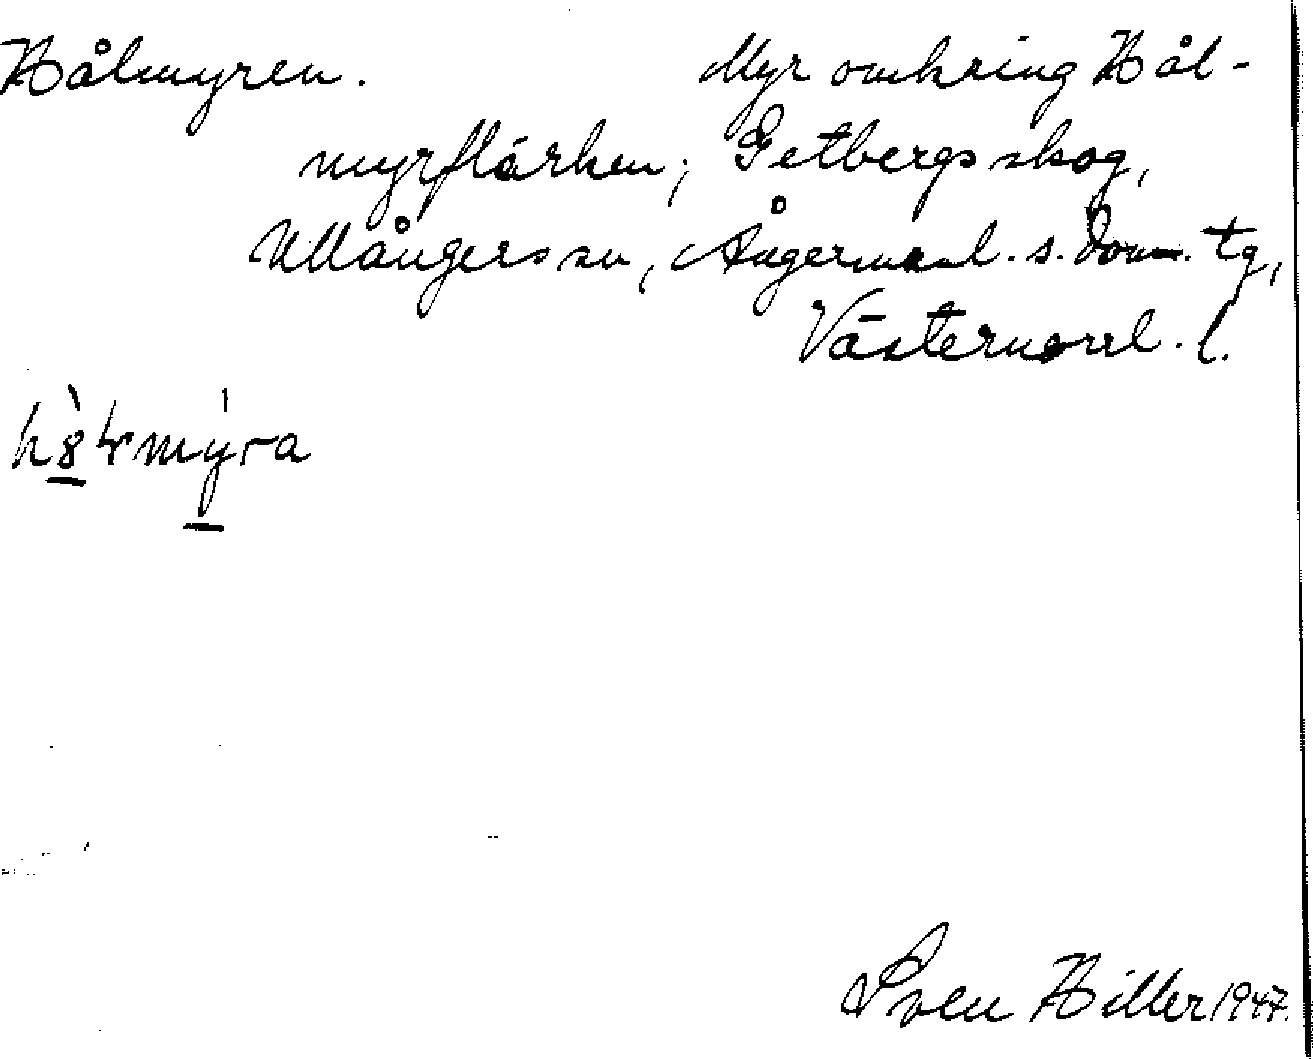 Hålmyren. Myr omkring Hål-
myrflärken; Getbergsskog,
Ullångers sn, Ångermanl. s. dom. tg,
Västernorrl. l.
Sven Hiller 1947.